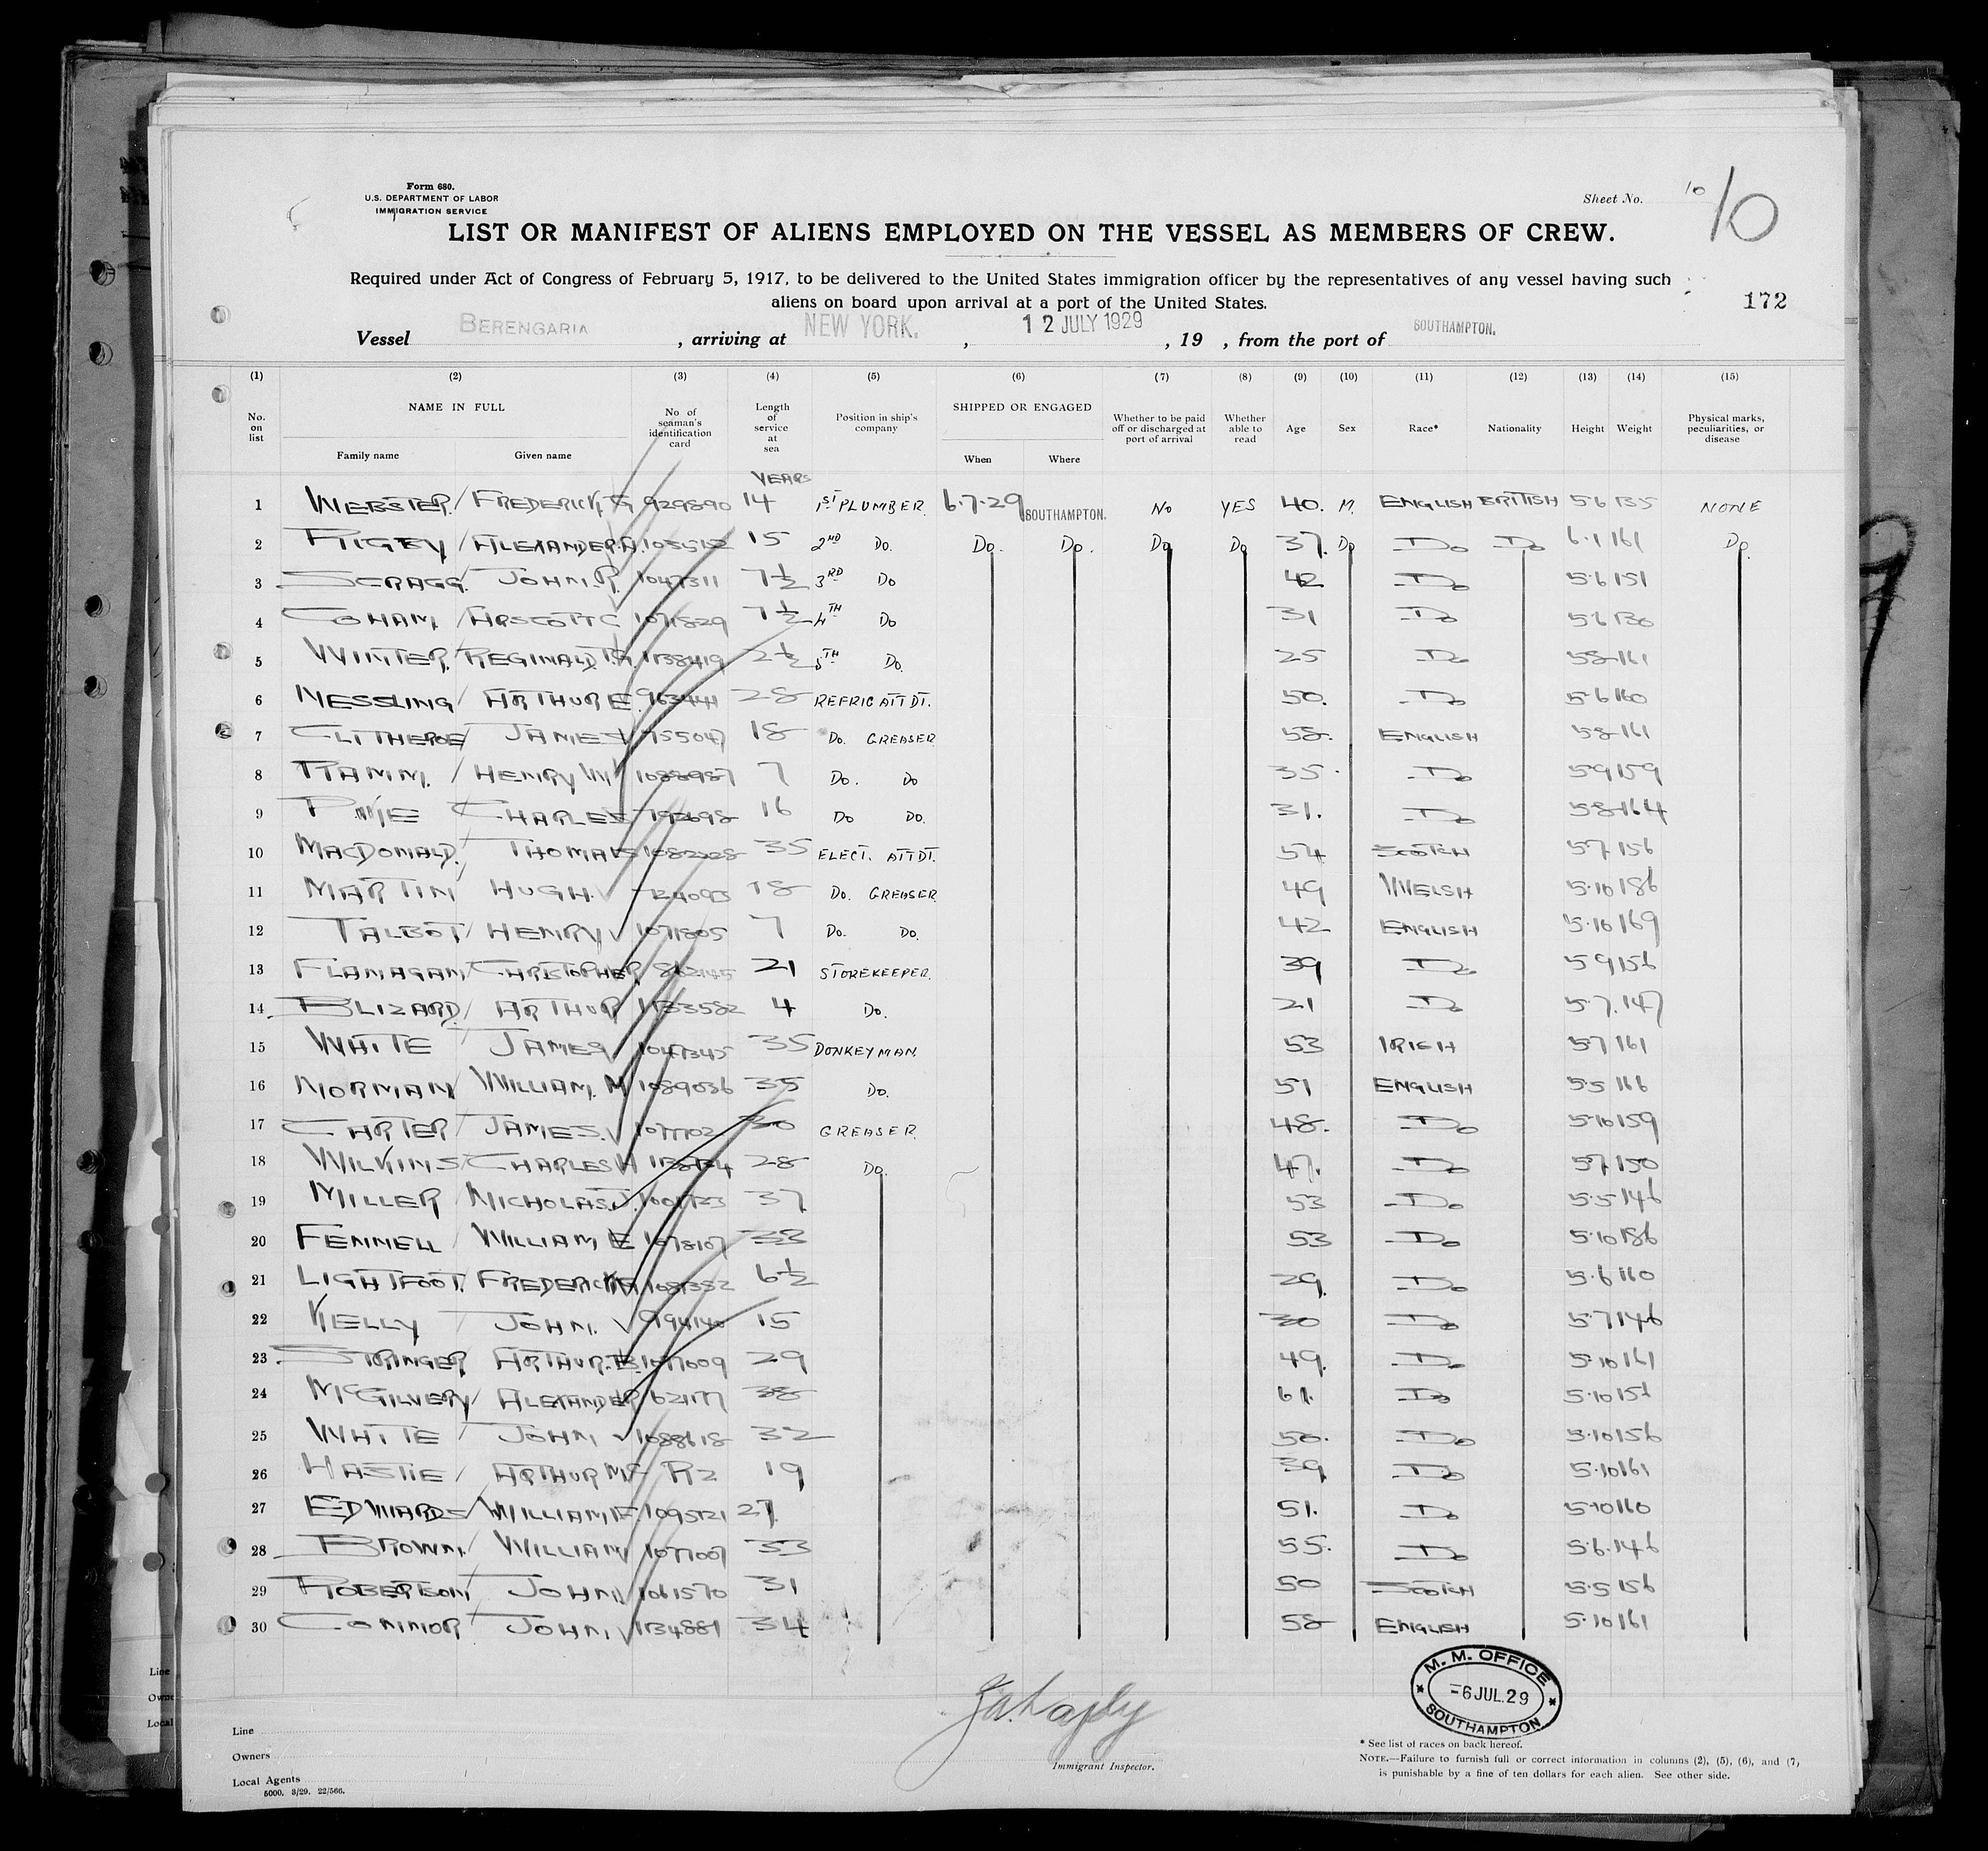 Form 680.
U.S. DEPARTMENT OF LABOR
IMMIGRATION SERVICE
Sheet No. 10
10
LIST OR MANIFEST OF ALIENS EMPLOYED ON THE VESSEL AS MEMBERS OF CREW.
Required under Act of Congress of February 5, 1917, to be delivered to the United States immigration officer by the representatives of any vessel having such
aliens on board upon arrival at a port of the United States.
172
Vessel BERENGARIA, arriving at NEW YORK., 12 JULY 1929, 19 , from the port of SOUTHAMPTON.
(1) (2) (3) (4) (5) (6) (7) (8) (9) (10) (11) (12) (13) (14) (15)
No. on list NAME IN FULL Family name Given name No of seaman's identification card Length of service at sea Position in ship's company SHIPPED OR ENGAGED When Where Whether to be paid off or discharged at port of arrival Whether able to read Age Sex Race* Nationality Height Weight Physical marks, peculiarities, or disease
YEARS
1 WEBSTER FREDERICK G 929890 14 1ST PLUMBER. 6.7.29 SOUTHAMPTON. No YES 40. M. ENGLISH BRITISH 5.6 135 NONE
2 RIGBY ALEXANDER A. 15 2ND Do. Do. Do. Do Do 37. Do Do Do 6.1 161 Do.
3 SCRAGG. JOHN. R. 1047311 7½ 3RD Do 42 Do 5.6 151
4 COHAM ARSCOTT C 1071829 7½ 4TH Do 31 Do 5.6 130
5 WINTER. REGINALD 1138419 2½ 5TH Do. 25 Do 5.8 161
6 NESSLING ARTHUR E. 963441 28 REFRIG ATTDT. 50. Do 5.6 160
7 CLITHEROE JAMES 755047 18 Do. GREASER 58. ENGLISH 5.8 161
8 RAMM. HENRY W 1088987 7 Do. Do 35. Do 5.9 159
9 PYKE CHARLES 792698 16 Do Do. 31. Do 5.8 164
10 MACDONALD. THOMAS 1082228 35 ELECT. ATTDT. 54 SCOTCH 5.7 156
11 MARTIN HUGH. 724093 18 Do. GREASER 49 WELSH 5.10 186
12 TALBOT HENRY 1071805 7 Do. Do. 42 ENGLISH 5.10 169
13 FLANAGAN CHRISTOPHER 862145 21 STOREKEEPER. 39 Do 5.9 156
14 BLIZARD ARTHUR 1133582 4 Do. 21 Do 5.7. 147
15 WHITE JAMES 1047345 35 DONKEYMAN. 53 IRISH 5.7 161
16 NORMAN WILLIAM. M 1089036 35 Do. 51 ENGLISH 5.5 166
17 CARTER JAMES. 30 GREASER. 48. Do 5.10 159
18 WILKINS CHARLES H 28 Do. 47. Do 5.7 150
19 MILLER NICHOLAS J. 37 53 Do 5.5 146
20 FENNELL WILLIAM E 1078107 33 53 Do 5.10 186
21 LIGHTFOOT. FREDERICK 1081352 6½ 29. Do 5.6 160
22 KELLY JOHN. 994140 15 30 Do 5.7 146
23 STRINGER ARTHUR. 1077009 29 49. Do 5.10 161
24 MCGILVERY ALEXANDER 621177 38 61. Do 5.10 151
25 WHITE JOHN 1088618 32 50. Do 5.10 156
26 HASTIE ARTHUR R2 19 39 Do 5.10 161
27 EDWARDS WILLIAM F. 1095121 27. 51. Do 5.10 160
28 BROWN. WILLIAM 1077007 33 55. Do 5.6. 146
29 ROBERTSON JOHN 1061570 31 50 SCOTCH 5.5 156
30 CONNOR JOHN 1134881 34 58 ENGLISH 5.10 161
M. M. OFFICE
-6 JUL. 29
SOUTHAMPTON
Line
Owners
Local Agents
5000. 3/29. 22/566.
Immigrant Inspector.
* See list of races on back hereof.
NOTE.—Failure to furnish full or correct information in columns (2), (5), (6), and (7,
is punishable by a fine of ten dollars for each alien. See other side.
Line
Local